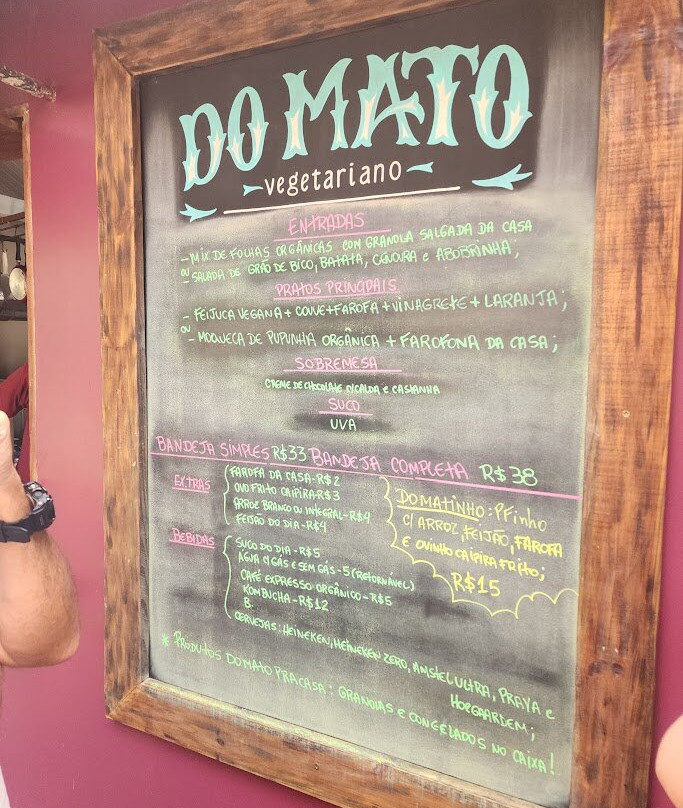 DO MATO
vegetariano
ENTRADAS
- MIX DE FOLHAS ORGÂNICAS COM GRANOLA SALGADA DA CASA
OU
- SALADA DE GRÃO DE BICO, BATATA, CENOURA E ABOBRINHA;
PRATOS PRINCIPAIS
- FEIJUCA VEGANA + COUVE + FAROFA + VINAGRETE + LARANJA;
OU
- MOQUECA DE PUPUNHA ORGÂNICA + FAROFONA DA CASA;
SOBREMESA
CREME DE CHOCOLATE C/CALDA E CASTANHA
SUCO
UVA
BANDEJA SIMPLES R$33 BANDEJA COMPLETA R$38
EXTRAS
FAROFA DA CASA - R$2
OVO FRITO CAIPIRA - R$3
ARROZ BRANCO OU INTEGRAL - R$4
FEIJÃO DO DIA - R$4
DOMATINHO: PFinho
C/ ARROZ, FEIJÃO, FAROFA
E OVINHO CAIPIRA FRITO;
R$15
BEBIDAS
SUCO DO DIA - R$5
ÁGUA C/ GÁS E SEM GÁS - 5 (RETORNÁVEL)
CAFÉ EXPRESSO ORGÂNICO - R$5
KOMBUCHA - R$12
B:
CERVEJAS: HEINEKEN, HEINEKEN ZERO, AMSTEL ULTRA, PRAYA E
HOEGAARDEM;
* PRODUTOS DO MATO PRA CASA: GRANOLAS E CONGELADOS NO CAIXA!